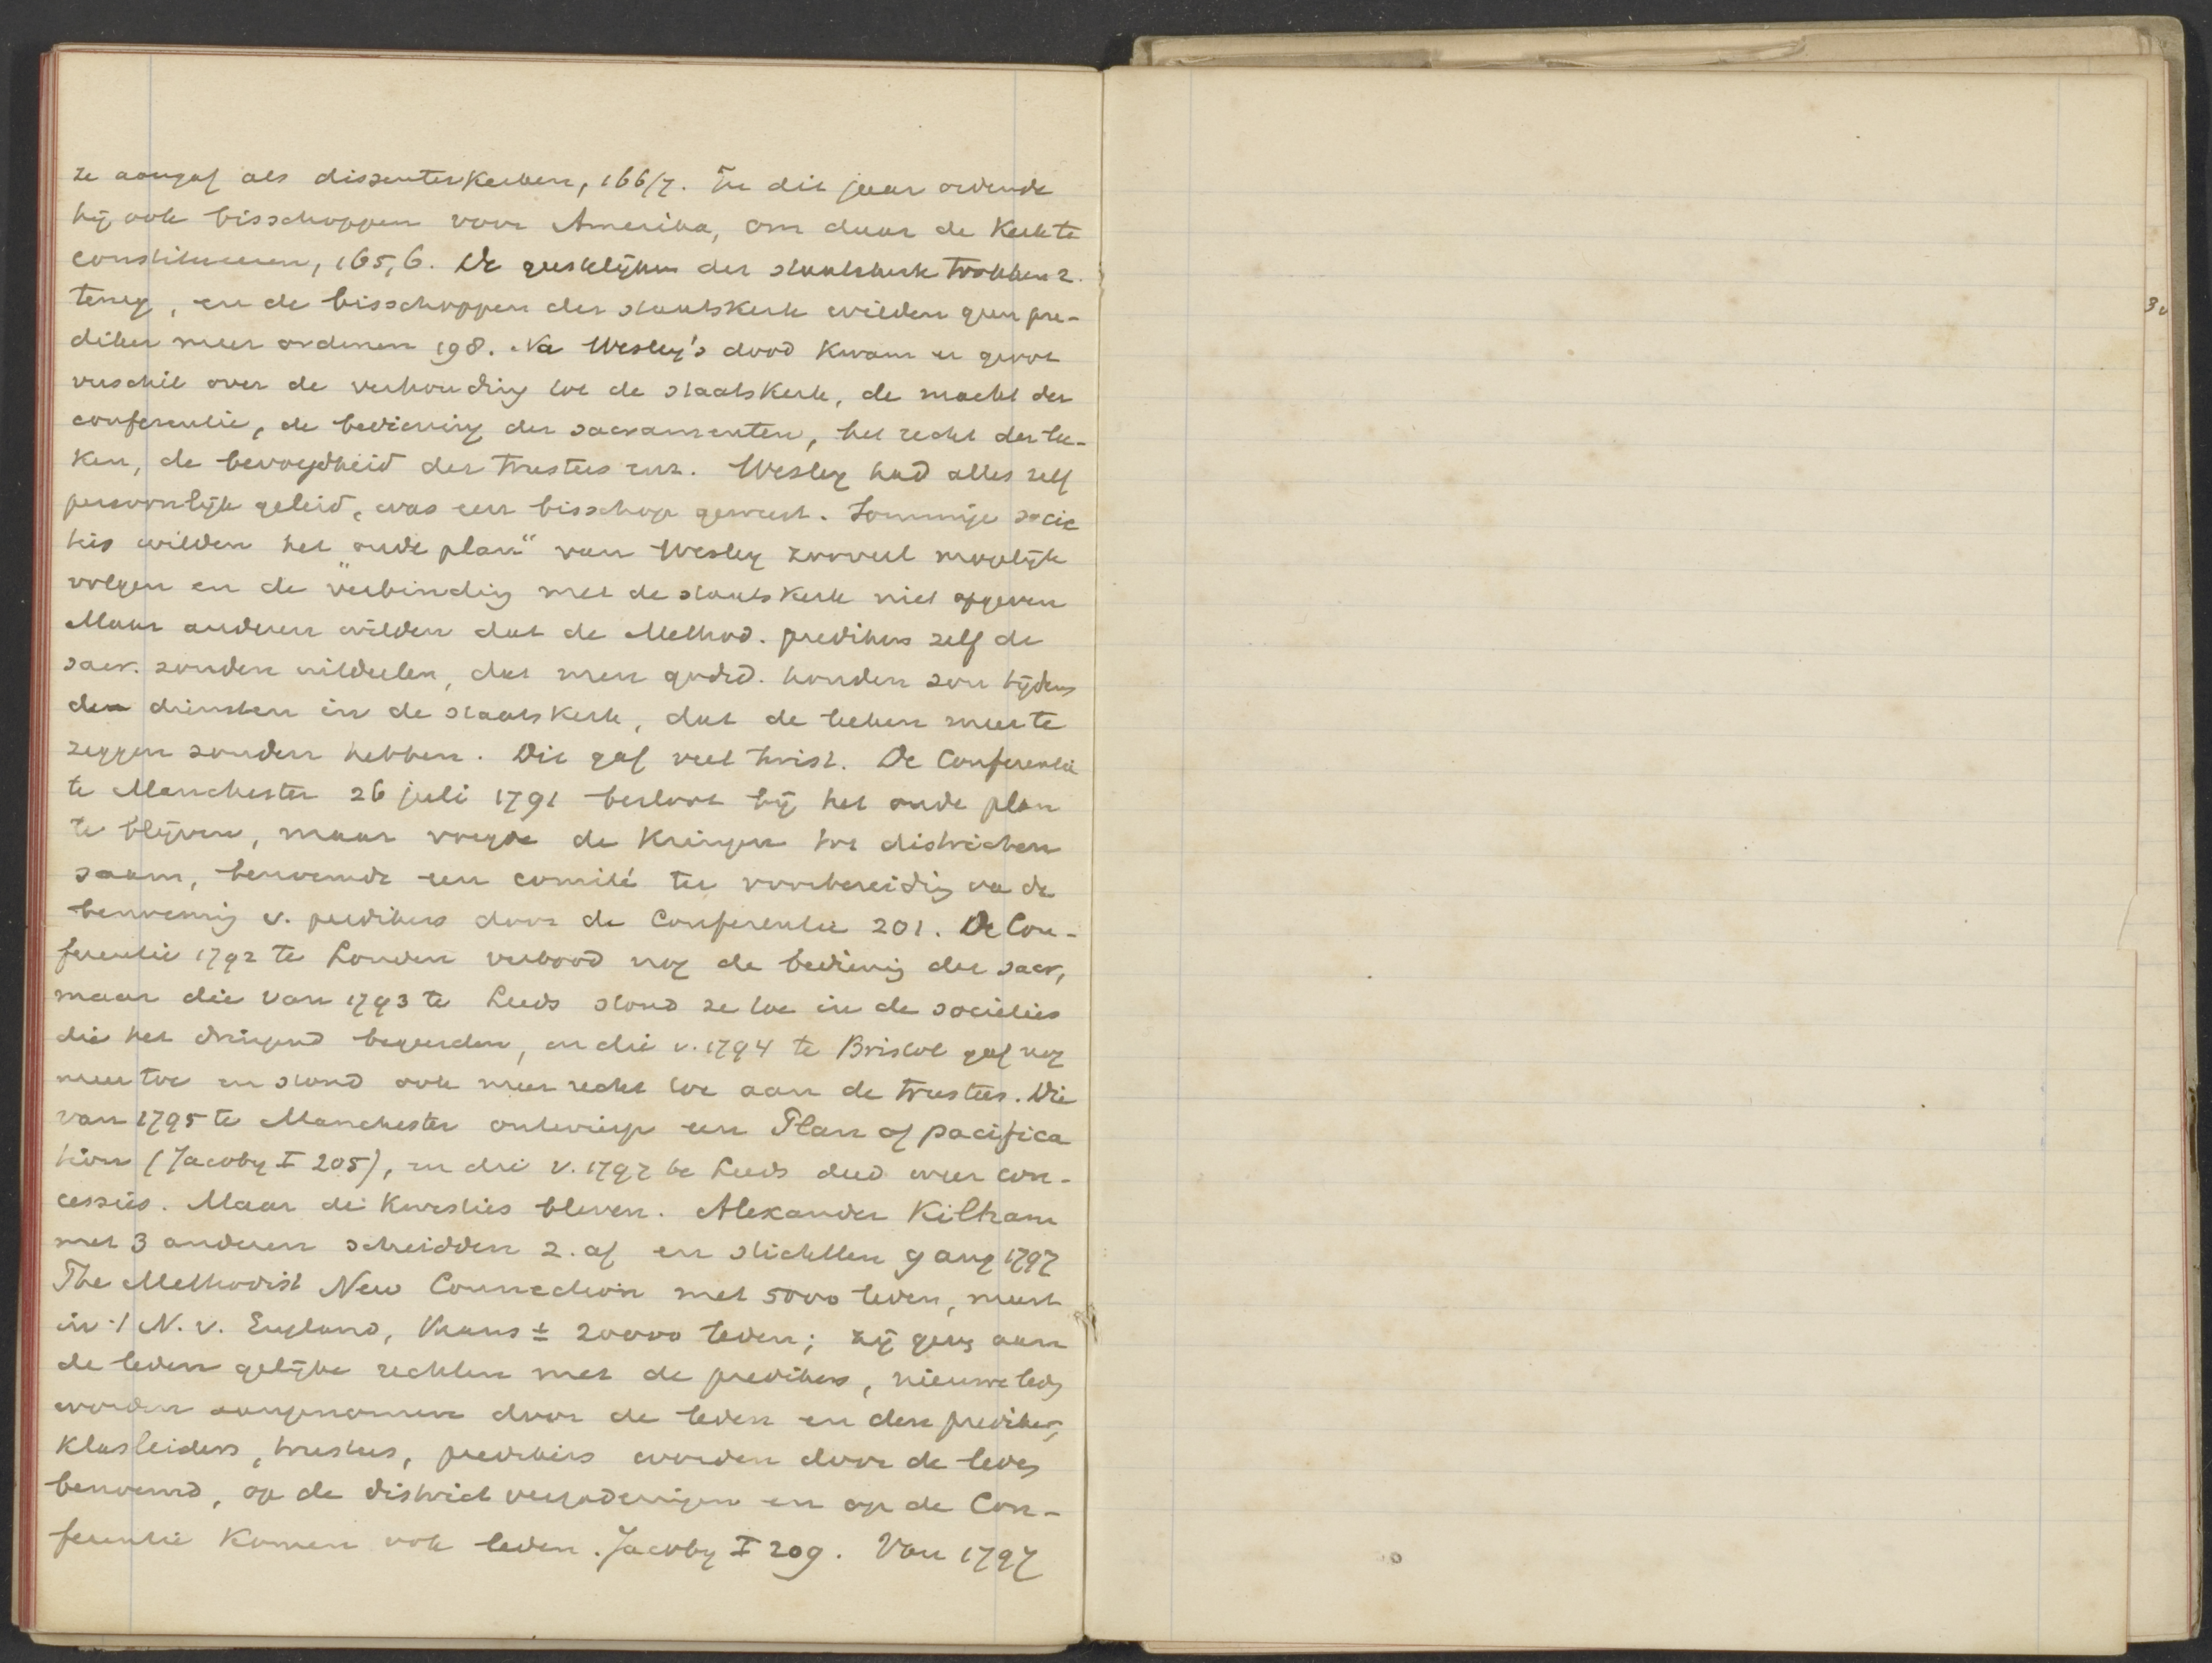 ze aangaf als dissenterkerken, 166/7. In dit jaar ordende
hij ook bisschoppen voor Amerika, om daar de Kerk te
constitueeren, 165,6. De geestelijken der staatskerk trokken z.
terug, en de bisschoppen der staatskerk wilden geen pre-
diker meer ordenen 198. Na Wesley's dood kwam er groot
verschil over de verhouding tot de staatskerk, de macht der
conferentie, de bediening der sacramenten, het recht der lee-
ken, de bevoegdheid der trustees enz. Wesley had alles zelf
persoonlijk geleid, was een bisschop geweest. Sommige socie
ties wilden het "oude plan" van Wesley zooveel mogelijk
volgen en de verbinding met de staatskerk niet opgeven
Maar anderen wilden dat de Method. predikers zelf de
sacr. zouden uitdeelen, dat men godsd. houden zou tijdens
den diensten in de staatskerk, dat de leeken meer te
zeggen zouden hebben. Dit gaf veel twist. De Conferentie
te Manchester 26 juli 1791 besloot bij het oude plan
te blijven, maar voegde de Kringen tot districten
saam, benoemde een comité ter voorbereiding va de
benoeming v. predikers door de Conferentie 201. De Con-
ferentie 1792 te Londen verbood nog de bediening der sacr,
maar die van 1793 te Leeds stond ze toe in de societies
die het dringend begeerden, en die v. 1794 te Bristol gaf nog
meer toe en stond ook meer recht toe aan de trustees. Die
van 1795 te Manchester ontwierp een Plan of pacifica
tion (Jacoby I 205), en die v. 1797 te Leeds deed weer con-
cessies. Maar de kwesties bleven. Alexander Kilham
met 3 anderen scheidden z. af en stichtten 9 aug 1797
The Methodist New Connection met 5000 leden, meest
in 't N. v. England, thans ± 20000 leden; zij geeft aan
de leden gelijke rechten met de predikers, nieuwe leden
worden aangenomen door de leden en den prediker,
klasleiders, trustees, predikers worden door de leden
benoemd, op de district vergaderingen en op de Con-
ferentie komen ook leden. Jacoby I 209. Van 1797